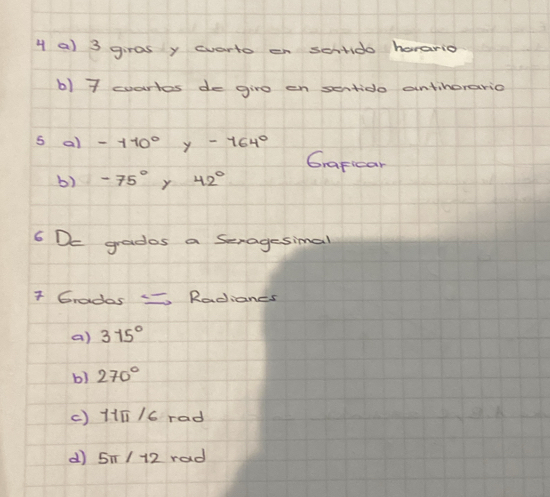 4 a) 3 giros y cuarto en sentido horario
b) 7 cuartos de giro en sentido antihorario
5 a) - 110° y - 164°
Graficar
b) - 75° y 42°
6 De grados a Sexagesimal
7 Grados ⇆ Radianes
a) 315°
b) 270°
c) 11π /6 rad
d) 5π / 12 rad